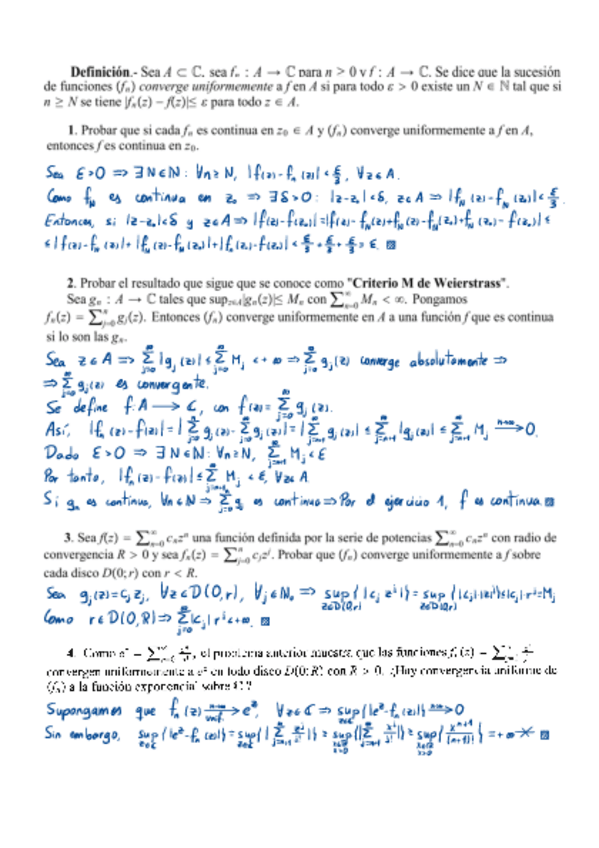 Definición.- Sea A ⊂ ℂ, sea fₙ : A → ℂ para n > 0 y f : A → ℂ. Se dice que la sucesión
de funciones (fₙ) converge uniformemente a f en A si para todo ε > 0 existe un N ∈ ℕ tal que si
n ≥ N se tiene |fₙ(z) − f(z)| ≤ ε para todo z ∈ A.
1. Probar que si cada fₙ es continua en z₀ ∈ A y (fₙ) converge uniformemente a f en A,
entonces f es continua en z₀.
Sea ε>0 ⇒ ∃N∈ℕ: ∀n≥N, |f(z)-fₙ(z)| < ε/3, ∀z∈A.
Como f_N es continua en z₀ ⇒ ∃δ>0: |z-z₀|<δ, z∈A ⇒ |f_N(z)-f_N(z₀)|< ε/3.
Entonces, si |z-z₀|<δ y z∈A ⇒ |f(z)-f(z₀)|=|f(z)-f_N(z)+f_N(z)-f_N(z₀)+f_N(z₀)-f(z₀)| ≤
≤ |f(z)-f_N(z)|+|f_N(z)-f_N(z₀)|+|f_N(z₀)-f(z₀)| < ε/3 + ε/3 + ε/3 = ε.
2. Probar el resultado que sigue que se conoce como "Criterio M de Weierstrass".
Sea gₙ : A → ℂ tales que sup_{z∈A}|gₙ(z)| ≤ Mₙ con ∑_{n=0}^∞ Mₙ < ∞. Pongamos
fₙ(z) = ∑_{j=0}^n gⱼ(z). Entonces (fₙ) converge uniformemente en A a una función f que es continua
si lo son las gₙ.
Sea z∈A ⇒ ∑_{j=0}^∞ |gⱼ(z)| ≤ ∑_{j=0}^∞ Mⱼ < +∞ ⇒ ∑_{j=0}^∞ gⱼ(z) converge absolutamente ⇒
⇒ ∑_{j=0}^∞ gⱼ(z) es convergente.
Se define f: A → ℂ, con f(z) = ∑_{j=0}^∞ gⱼ(z).
Así, |fₙ(z)-f(z)| = |∑_{j=0}^n gⱼ(z) - ∑_{j=0}^∞ gⱼ(z)| = |∑_{j=n+1}^∞ gⱼ(z)| ≤ ∑_{j=n+1}^∞ |gⱼ(z)| ≤ ∑_{j=n+1}^∞ Mⱼ →^{n→∞} 0.
Dado ε>0 ⇒ ∃N∈ℕ: ∀n≥N, ∑_{j=n+1}^∞ Mⱼ < ε
Por tanto, |fₙ(z)-f(z)| ≤ ∑_{j=n+1}^∞ Mⱼ < ε, ∀z∈A
Si gₙ es continua, ∀n∈ℕ ⇒ ∑_{j=0}^n gⱼ es continua ⇒ Por el ejercicio 1, f es continua.
3. Sea f(z) = ∑_{n=0}^∞ cₙzⁿ una función definida por la serie de potencias ∑_{n=0}^∞ cₙzⁿ con radio de
convergencia R > 0 y sea fₙ(z) = ∑_{j=0}^n cⱼzʲ. Probar que (fₙ) converge uniformemente a f sobre
cada disco D(0; r) con r < R.
Sea gⱼ(z)=cⱼzʲ, ∀z∈D(0,r), ∀j∈ℕ₀ ⇒ sup_{z∈D(0,r)} {|cⱼ zʲ|} = sup_{z∈D(0,r)} {|cⱼ|·|zʲ|} ≤ |cⱼ|·rʲ = Mⱼ
Como r∈D(0,R) ⇒ ∑_{j=0}^∞ |cⱼ| rʲ < +∞.
4. Como eᶻ = ∑_{n=0}^∞ zⁿ/n!, el problema anterior muestra que las funciones fₙ(z) = ∑_{j=0}^n zʲ/j!
convergen uniformemente a eᶻ en todo disco D(0; R) con R > 0. ¿Hay convergencia uniforme de
(fₙ) a la función exponencial sobre ℂ?
Supongamos que fₙ(z) →^{n→∞}_{unif.} eᶻ, ∀z∈ℂ ⇒ sup_{z∈ℂ} {|eᶻ-fₙ(z)|} →^{n→∞} 0
Sin embargo, sup_{z∈ℂ} {|eᶻ-fₙ(z)|} = sup_{z∈ℂ} {|∑_{j=n+1}^∞ zʲ/j!|} ≥ sup_{x∈ℝ, x>0} {|∑_{j=n+1}^∞ xʲ/j!|} ≥ sup_{x∈ℝ, x>0} {x^{n+1}/(n+1)!} = +∞